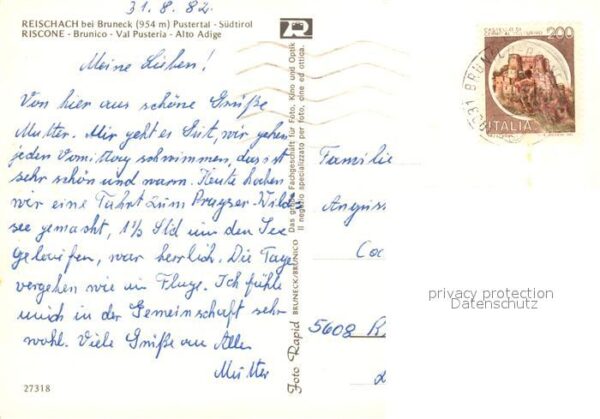 31.8.82
REISCHACH bei Bruneck (954 m) Pustertal - Südtirol
RISCONE - Brunico - Val Pusteria - Alto Adige
Meine Lieben!
Von hier aus schöne Grüße
Mutter. Mir geht es Gut, wir gehen
jeden Vormittag schwimmen, das ist
sehr schön und warm. Heute haben
wir eine Fahrt zum Pragser-Wild-
see gemacht, 1½ Std um den See
gelaufen, war herrlich. Die Tage
vergehen wie im Fluge. Ich fühle
mich in der Gemeinschaft sehr
wohl. Viele Grüße an Alle
Mutter
27318
Foto Rapid BRUNECK/BRUNICO
Das große Fachgeschäft für Foto, Kino und Optik
Il negozio specializzato per foto, cine ed ottica.
R
Familie
5608 R
200
ITALIA
BRUNICO
privacy protection
Datenschutz